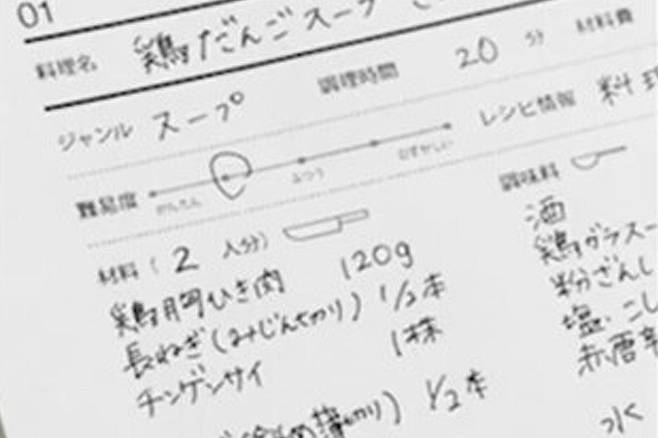 01
料理名 鶏だんごスープ
調理時間 20 分 材料費
ジャンル スープ
レシピ情報 料理
難易度 かんたん ふつう むずかしい
材料 ( 2 人分)
鶏胸ひき肉 120g
長ねぎ(みじん切り) 1/2本
チンゲンサイ 1株
薄切り) 1/2本
調味料
酒
鶏ガラスー
粉ざんし
塩. こし
赤唐辛
水